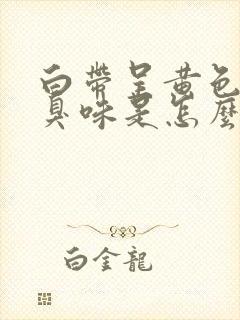 白帶呈黄色
臭味是怎麼
白金龍